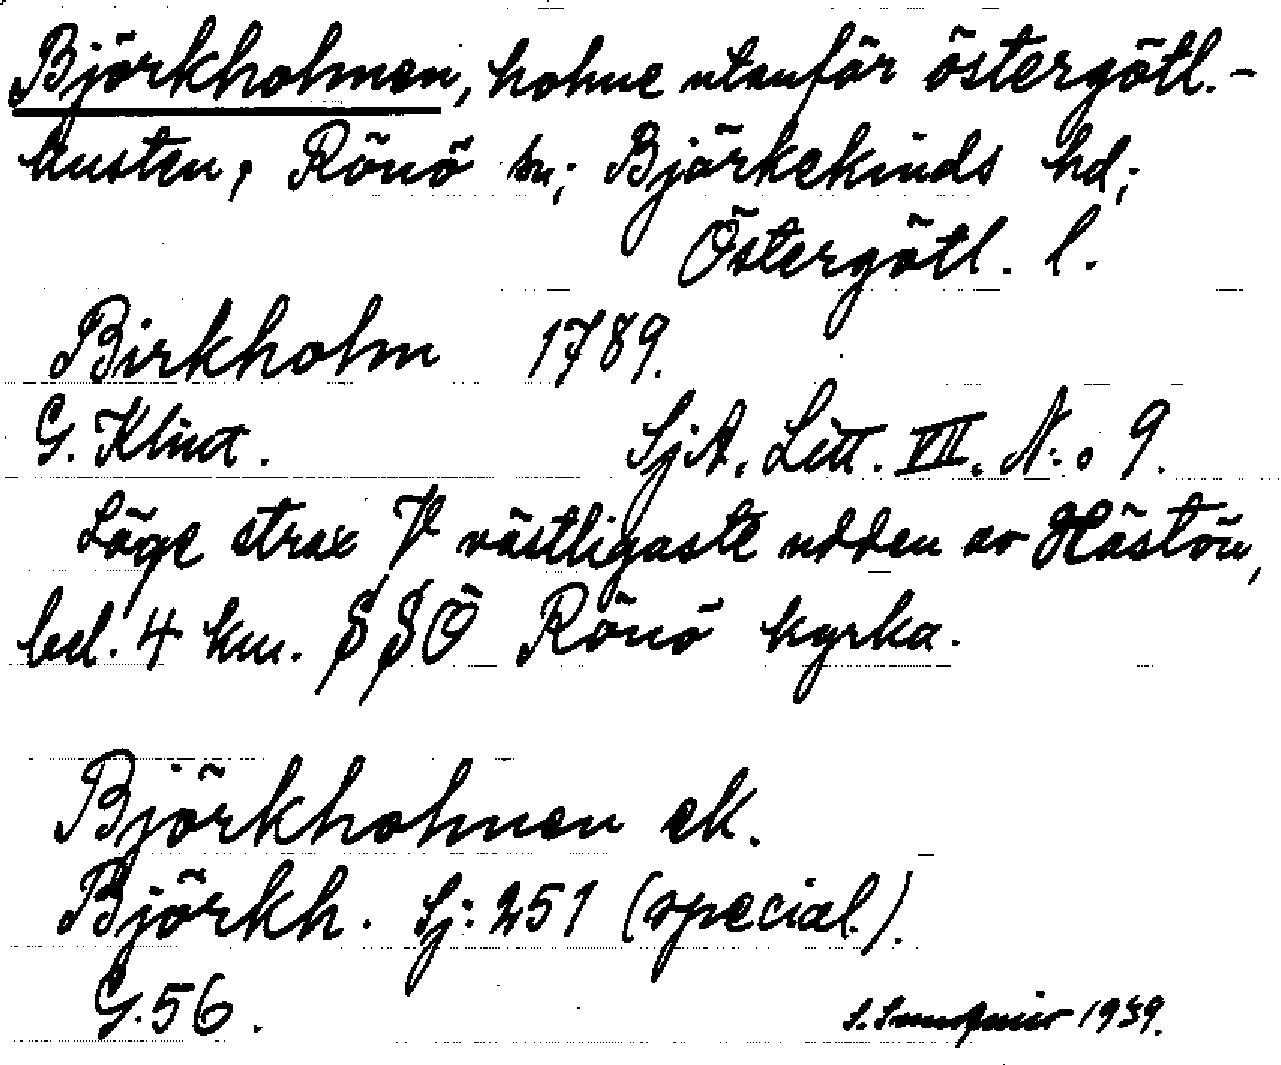 Björkholmen, holme utanför östergötl.-
kusten, Rönö sn; Björkekinds hd;
Östergötl. l.
Birkholm 1789.
G. Klint. SjA, Litt. VII. N:o 9.
Läge strax V västligaste udden av Hästön,
bel. 4 km. SSO Rönö kyrka.
Björkholmen ek.
Björkh. Sj: 251 (special.).
G. 56.
S. 1939.